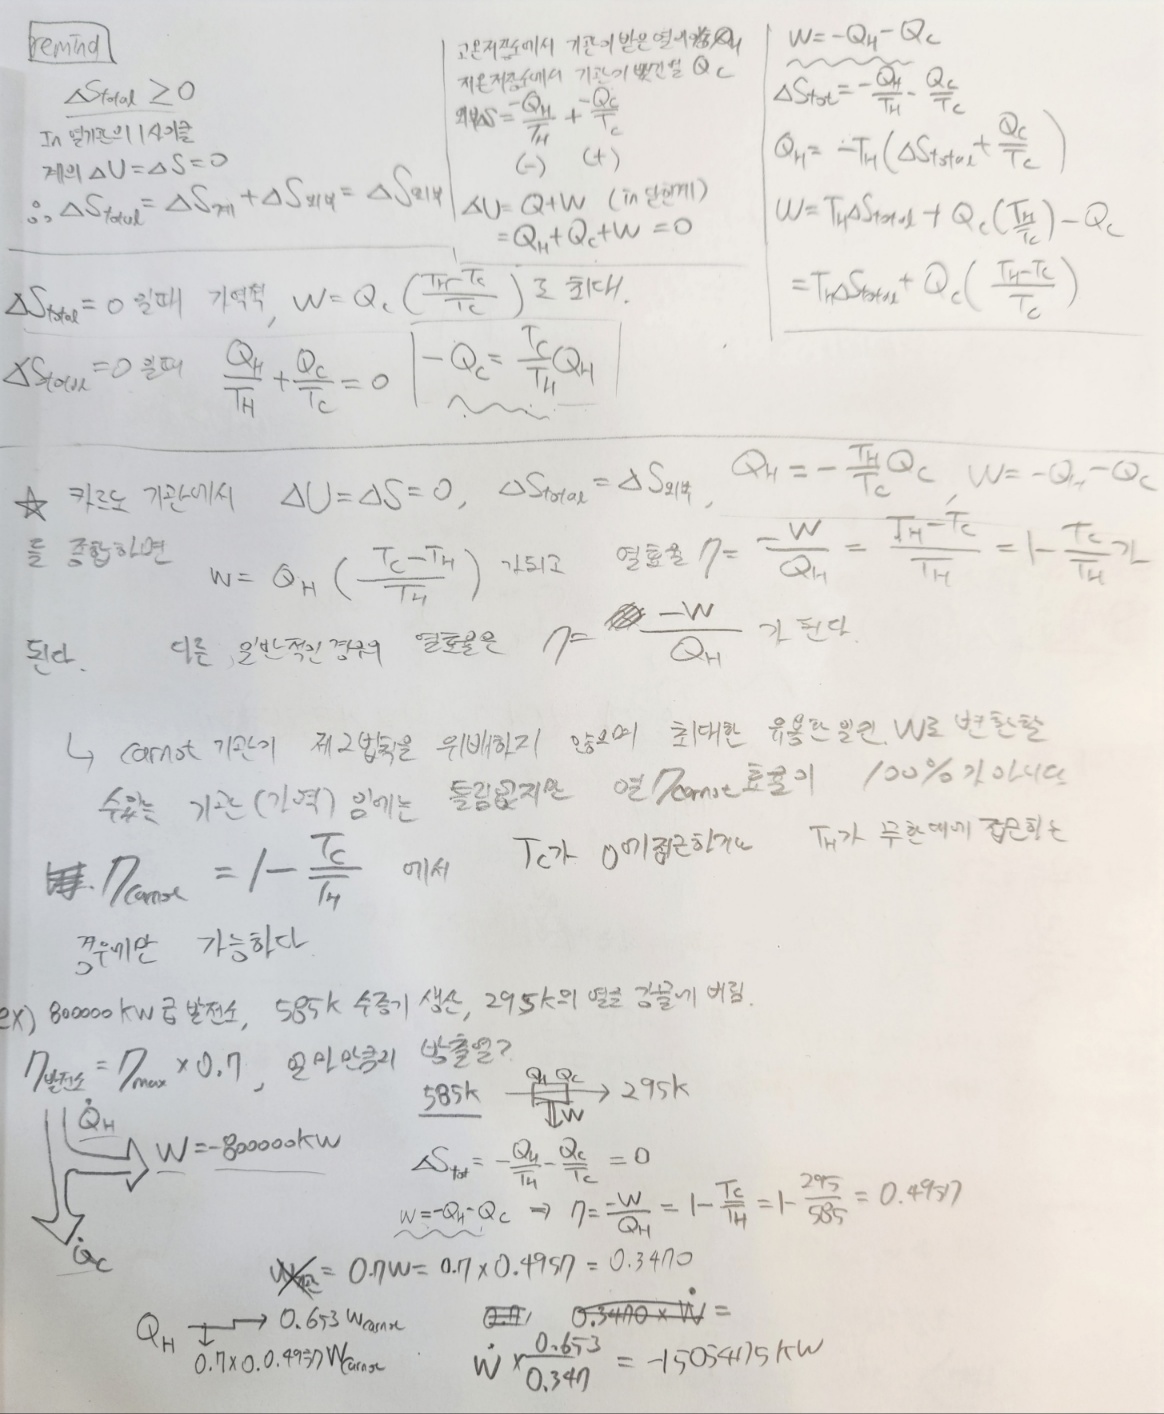 remind
ΔStotal ≥ 0
In 열기관의 1사이클
계의 ΔU = ΔS = 0
∴ ΔStotal = ΔS계 + ΔS외부 = ΔS외부
고온저장소에서 기관이 받은 열 QH
저온저장소에서 기관이 버린열 QC
외부ΔS = -QH/TH + -QC/TC
(-) (+)
ΔU = Q+W (in 닫힌계)
= QH+QC+W = 0
W = -QH - QC
ΔStot = -QH/TH - QC/TC
QH = -TH(ΔStotal + QC/TC)
W = THΔStotal + QC(TH/TC) - QC
= THΔStotal + QC((TH-TC)/TC)
ΔStotal = 0 일때 가역적, W = QC((TH-TC)/TC)로 최대.
ΔStotal = 0 일때 QH/TH + QC/TC = 0 -QC = TC/TH QH
☆ 카르노 기관에서 ΔU = ΔS = 0, ΔStotal = ΔS외부, QH = -TH/TC QC, W = -QH - QC
를 종합하면 W = QH((TC-TH)/TH) 가되고 열효율 η = -W/QH = (TH-TC)/TH = 1 - TC/TH 가
된다. 다른 일반적인 경우의 열효율은 η = -W/QH 가 된다.
↳ carnot 기관이 제2법칙을 위배하지 않으며 최대한 유용한 일인 W로 변환할
수있는 기관(가역) 임에는 틀림없지만 열 ηcarnot 효율이 100%가 아니다
ηcarnot = 1 - TC/TH 에서 TC가 0에 접근하거나 TH가 무한대에 접근하는
경우에만 가능하다
ex) 800000kW급 발전소, 585K 수증기 생산, 295K의 열을 강물에 버림.
η발전소 = ηmax × 0.7, 얼마만큼의 방출열?
585K QH QC → 295K
W
Q̇H
Ẇ = -800000kW
Q̇C
ΔStot = -QH/TH - QC/TC = 0
W = -QH - QC → η = -W/QH = 1 - TC/TH = 1 - 295/585 = 0.4957
= 0.7W = 0.7 × 0.4957 = 0.3470
QH → 0.653 Wcarnot
0.7×0.0.4957 Wcarnot
0.3470 × Ẇ =
Ẇ × 0.653/0.347 = -1505475kW